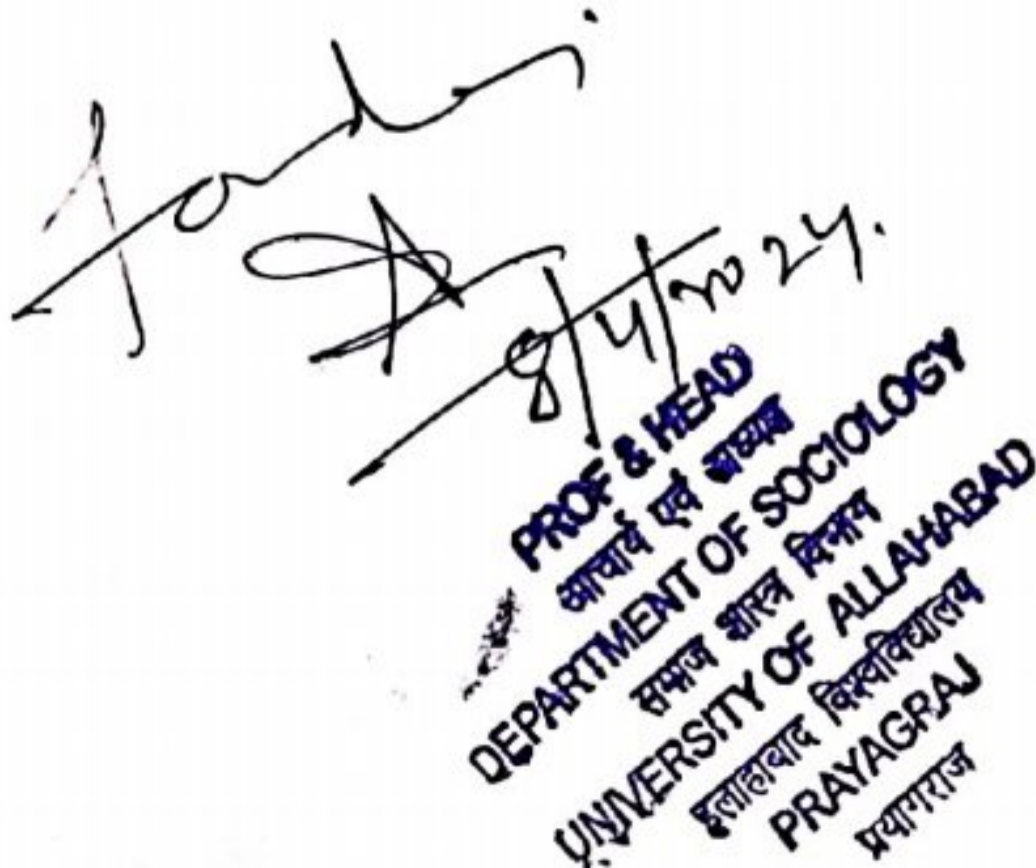 8/4/2024.
PROF & HEAD
आचार्य एवं अध्यक्ष
DEPARTMENT OF SOCIOLOGY
समाज शास्त्र विभाग
UNIVERSITY OF ALLAHABAD
इलाहाबाद विश्वविद्यालय
PRAYAGRAJ
प्रयागराज